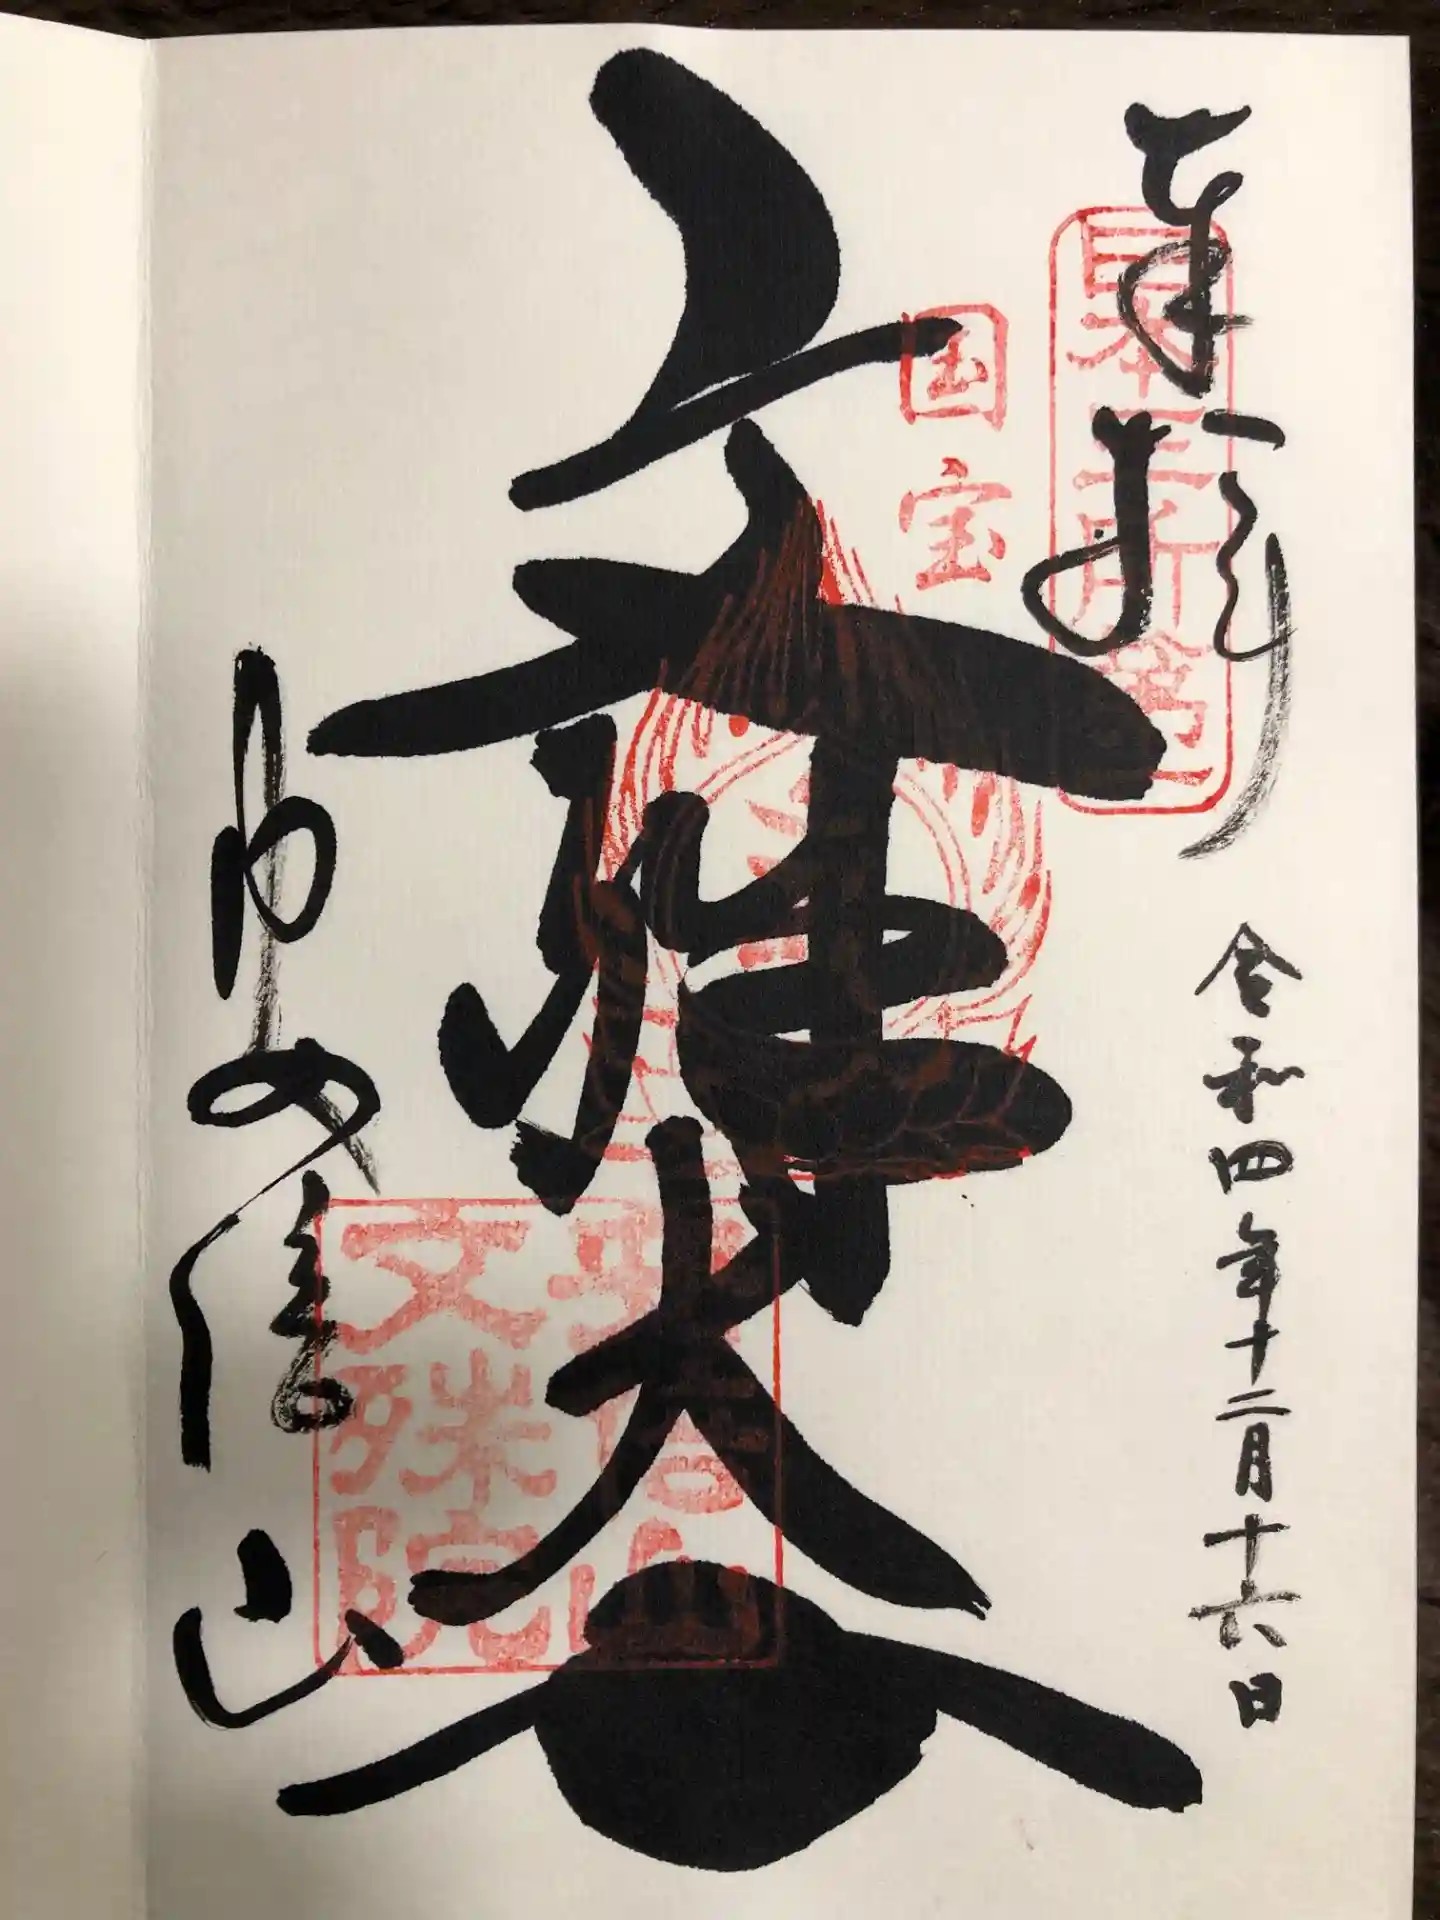 奉拝
日本三所第一
令和四年十二月十六日
国宝
文殊大
安倍山
安倍山
文殊院